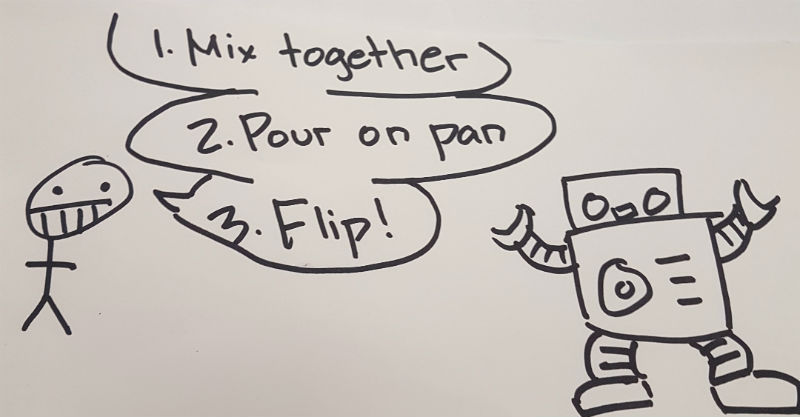 1. Mix together
2. Pour on pan
3. Flip!